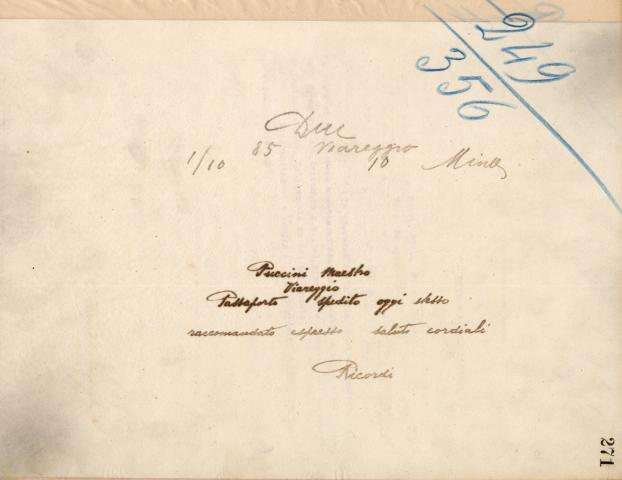 249
356
Viareggio
1/10 85 10
Puccini Maestro
Viareggio
Passaporto spedito oggi stesso
raccomandato espresso saluti cordiali
Ricordi
271